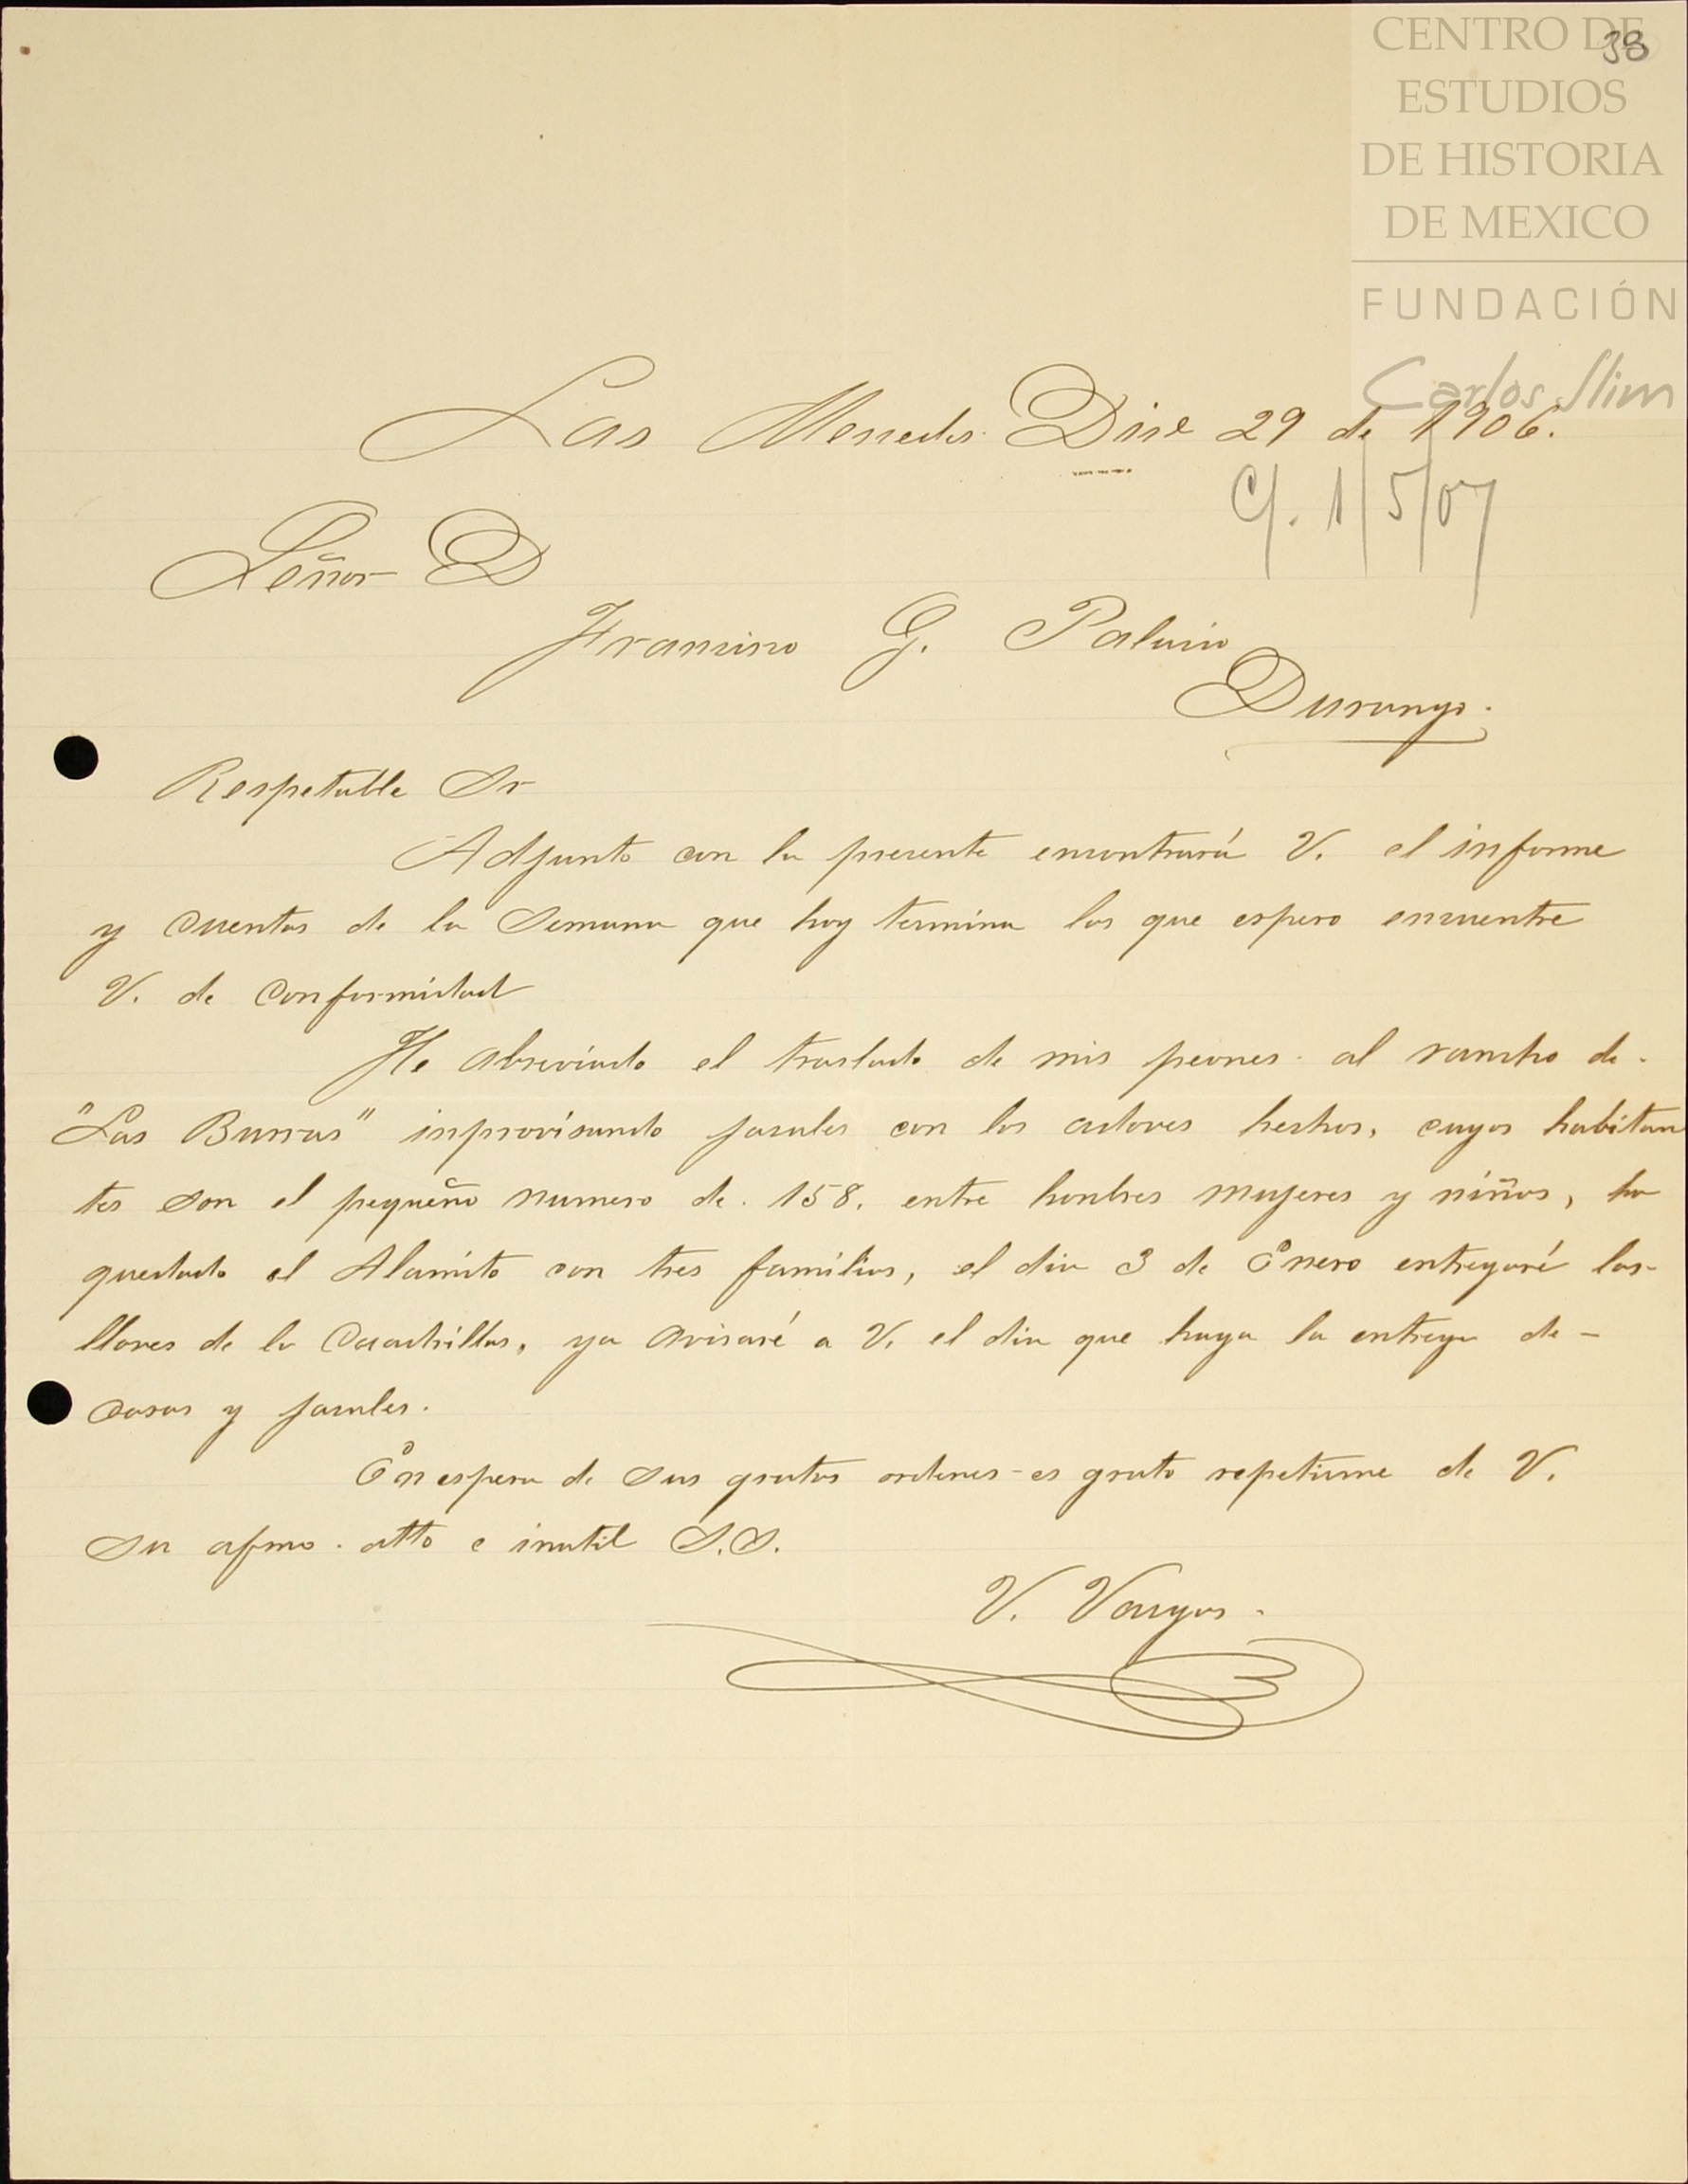 CENTRO DE
38
ESTUDIOS
DE HISTORIA
DE MEXICO
FUNDACIÓN
Carlos Slim
Las Mercedes Dice 29 de 1906.
C/. 1/5/07
Señor D
Francisco G. Palacio
Durango.
Respetable Sr
Adjunto con la presente encontrará V. el informe
y cuentas de la Semana que hoy termina las que espero encuentre
V. de conformidad
He abreviado el traslado de mis peones al rancho de
"Las Burras" inprovisando jacales con los adoves hechos, cuyos habitan
tes son el pequeño numero de 158. entre honbres mujeres y niños, ha
quedado el Alamito con tres familias, el dia 3 de Enero entregaré las
llaves de la Cuadrillas, ya avisaré a V. el dia que haga la entrega de -
casas y jacales.
En espera de sus gratas ordenes es grato repetirme de V.
su afmo. atto e inutil S.S.
V. Vargas.